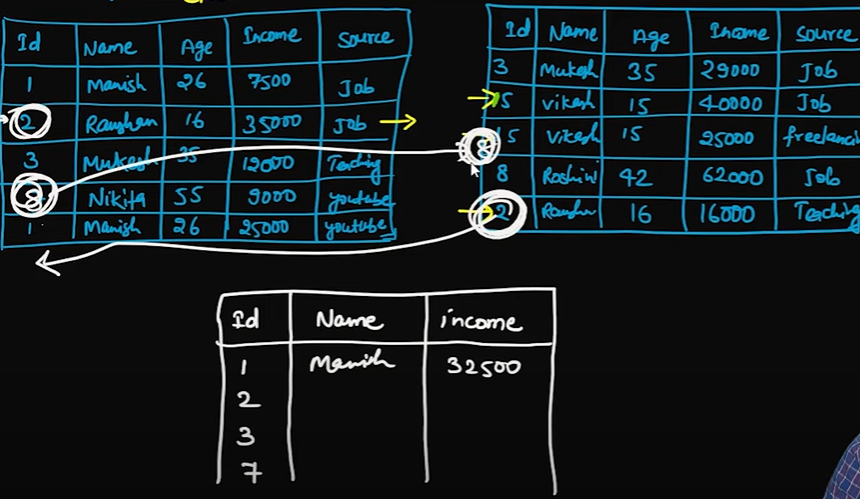 Id Name Age Income Source
1 Manish 26 7500 Job
2 Raushan 16 35000 Job
3 Mukesh 35 12000 Teaching
8 Nikita 55 9000 youtube
1 Manish 26 25000 youtube
Id Name Age Income Source
3 Mukesh 35 29000 Job
15 vikash 15 40000 Job
8 15 Vikash 15 25000 freelanci
8 Roshini 42 62000 Job
2 16 16000 Teaching
Id Name income
1 Manish 32500
2
3
7